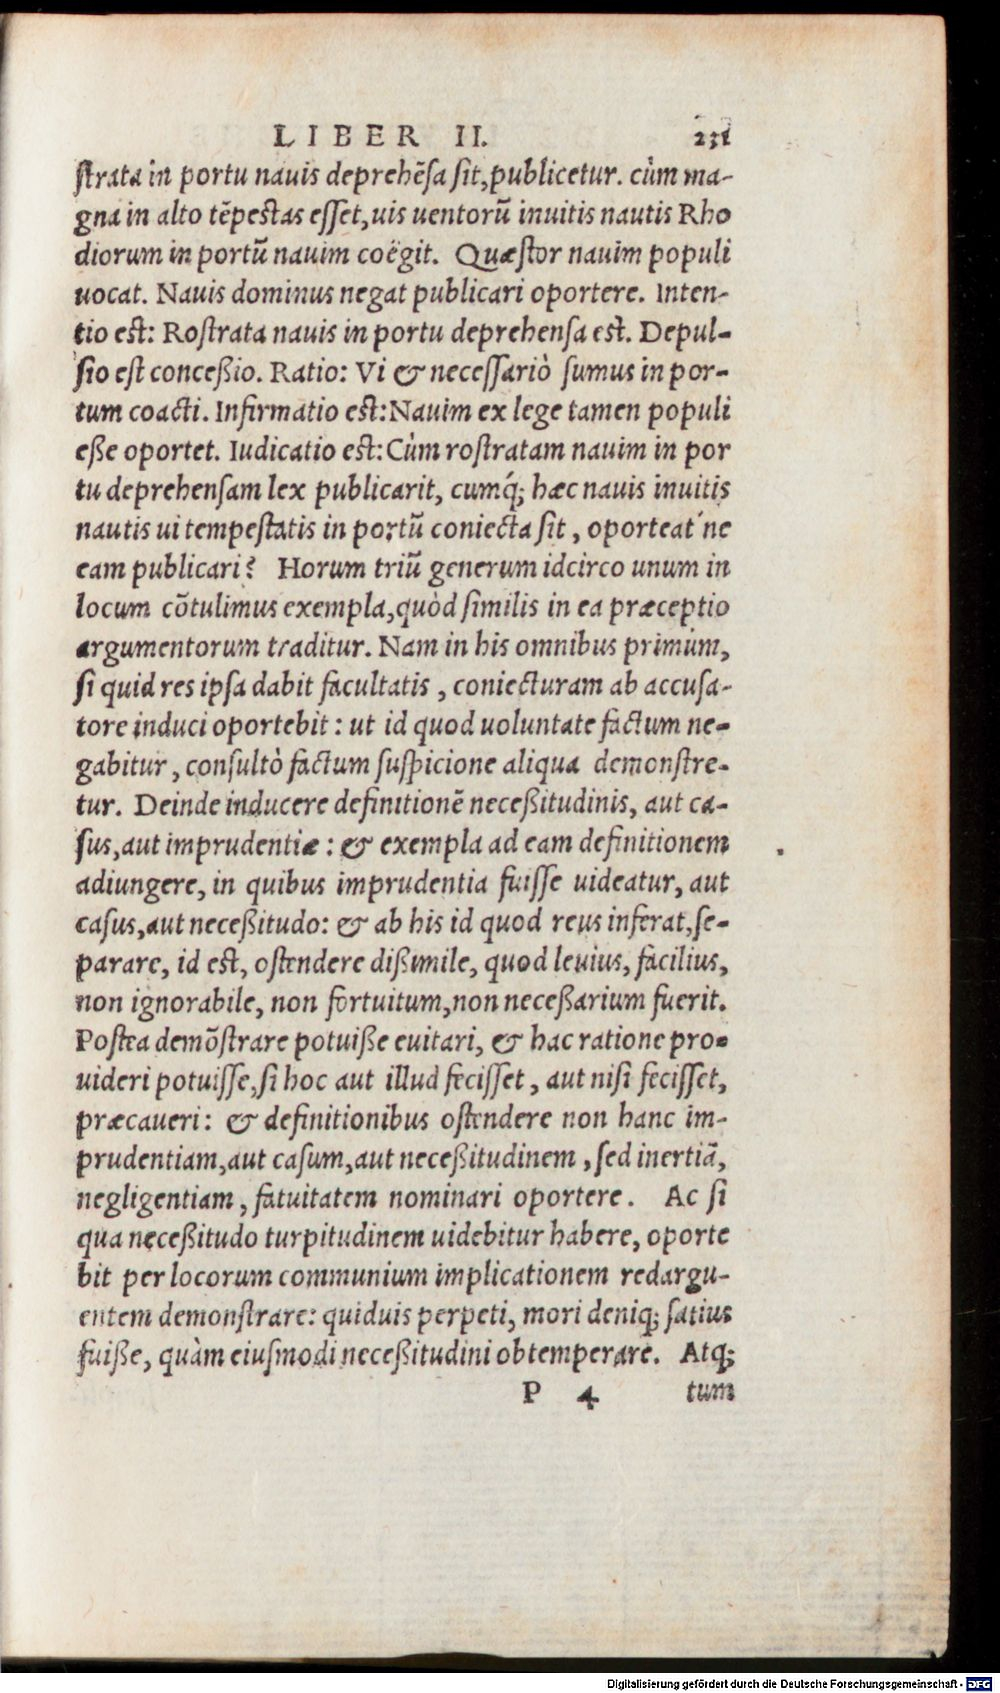 LIBER II. 231
strata in portu nauis deprehẽsa sit, publicetur. cùm ma-
gna in alto tẽpestas esset, uis uentorũ inuitis nautis Rho
diorum in portũ nauim coëgit. Quæstor nauim populi
uocat. Nauis dominus negat publicari oportere. Inten-
tio est: Rostrata nauis in portu deprehensa est. Depul-
sio est conceßio. Ratio: Vi & necessariò sumus in por-
tum coacti. Infirmatio est: Nauim ex lege tamen populi
eße oportet. Iudicatio est: Cùm rostratam nauim in por
tu deprehensam lex publicarit, cumq́; hæc nauis inuitis
nautis ui tempestatis in portũ coniecta sit, oporteat´ne
eam publicari? Horum triũ generum idcirco unum in
locum cõtulimus exempla, quòd similis in ea præceptio
argumentorum traditur. Nam in his omnibus primùm,
si quid res ipsa dabit facultatis, coniecturam ab accusa-
tore induci oportebit: ut id quod uoluntate factum ne-
gabitur, consultò factum suspicione aliqua demonstre-
tur. Deinde inducere definitionẽ neceßitudinis, aut ca-
sus, aut imprudentiæ: & exempla ad eam definitionem
adiungere, in quibus imprudentia fuisse uideatur, aut
casus, aut neceßitudo: & ab his id quod reus inferat, se-
parare, id est, ostendere dißimile, quod leuius, facilius,
non ignorabile, non fortuitum, non neceßarium fuerit.
Postea demõstrare potuiße euitari, & hac ratione pro-
uideri potuisse, si hoc aut illud fecisset, aut nisi fecisset,
præcaueri: & definitionibus ostendere non hanc im-
prudentiam, aut casum, aut neceßitudinem, sed inertiã,
negligentiam, fatuitatem nominari oportere. Ac si
qua neceßitudo turpitudinem uidebitur habere, oporte
bit per locorum communium implicationem redargu-
entem demonstrare: quiduis perpeti, mori deniq; satius
fuiße, quàm eiusmodi neceßitudini obtemperare. Atq;
P 4 tum
Digitalisierung gefördert durch die Deutsche Forschungsgemeinschaft - DFG